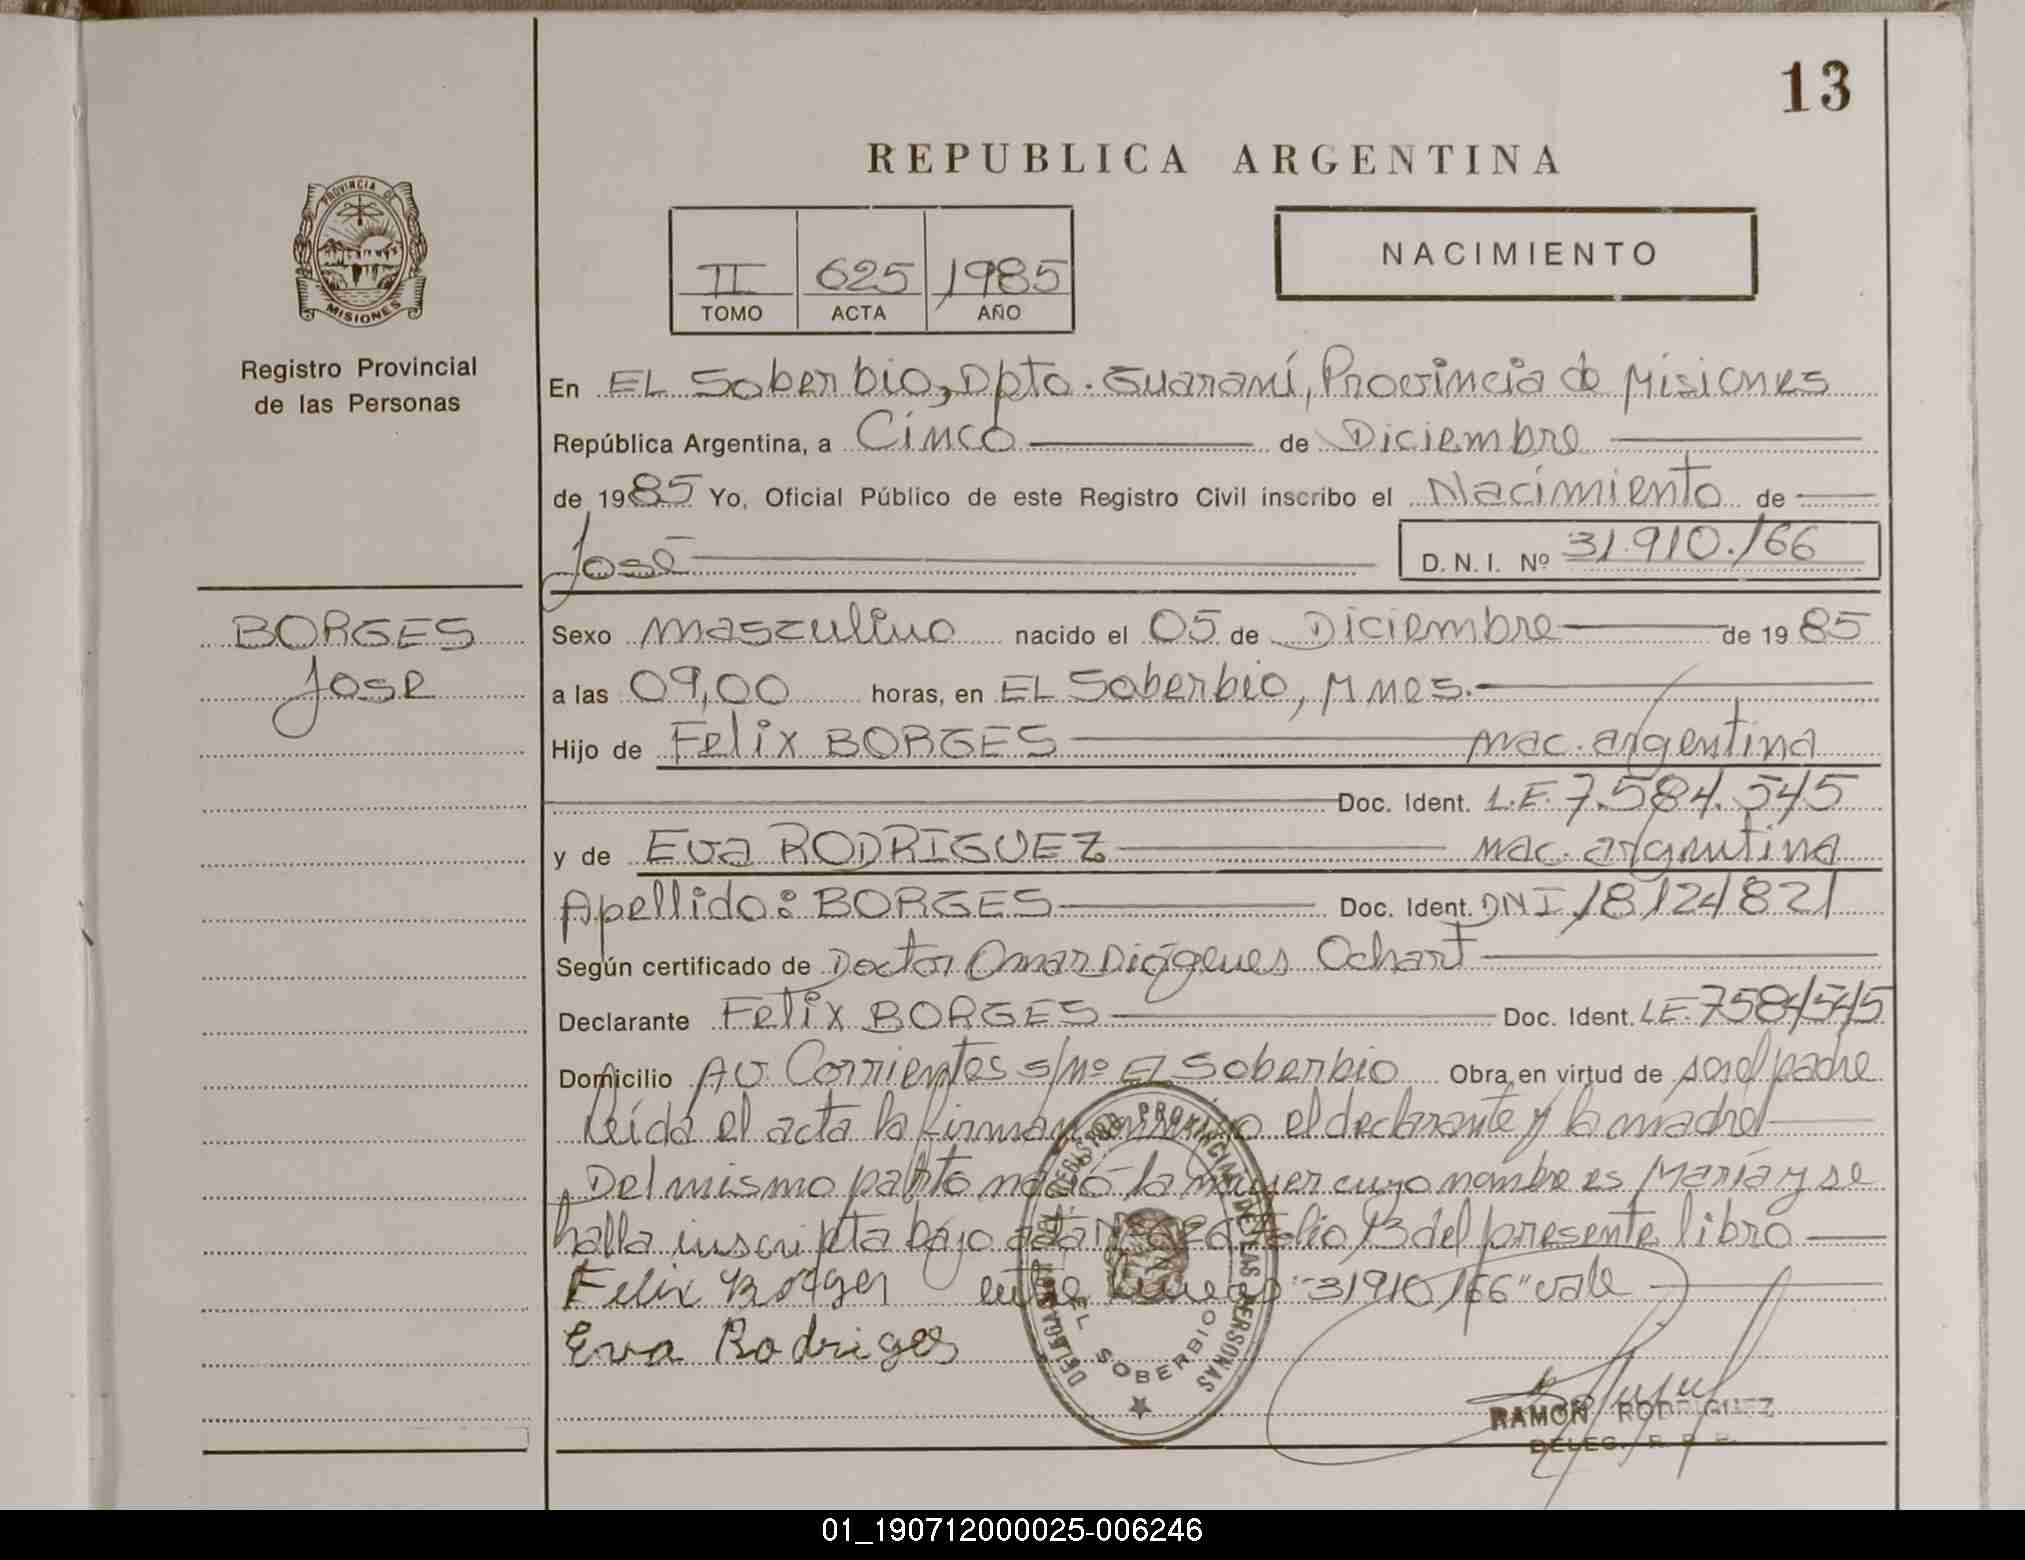 13
REPUBLICA ARGENTINA
PROVINCIA DE
MISIONES
Registro Provincial
de las Personas
II 625 1985
TOMO ACTA AÑO
NACIMIENTO
En EL Soberbio, Dpto. Guaraní, Provincia de Misiones
República Argentina, a Cinco de Diciembre
de 1985 Yo, Oficial Público de este Registro Civil inscribo el Nacimiento de
José D.N.I. Nº 31.910.166
BORGES
Jose
Sexo masculino nacido el 05 de Diciembre de 1985
a las 09,00 horas, en EL Soberbio, Mnes.
Hijo de Felix BORGES nac. argentina
Doc. Ident. L.E. 7.584.545
y de Eva RODRIGUEZ nac. argentina
Apellido: BORGES Doc. Ident. DNI 18124821
Según certificado de Doctor Omar Diógenes Ochart
Declarante Felix BORGES Doc. Ident. LE. 7584545
Domicilio AV Corrientes s/nº El Soberbio Obra en virtud de ser el padre
Leída el acta la firman conmigo el declarante y la madre
Del mismo parto nació la mujer cuyo nombre es María y se
halla inscripta bajo acta Folio 13 del presente libro
Felix Borges entre lineas "31910166" vale
Eva Rodriges
DELEGACION DEL REGISTRO PROVINCIAL DE LAS PERSONAS
EL SOBERBIO
RAMON RODRIGUEZ
DELEG. R. P. P.
01_190712000025-006246